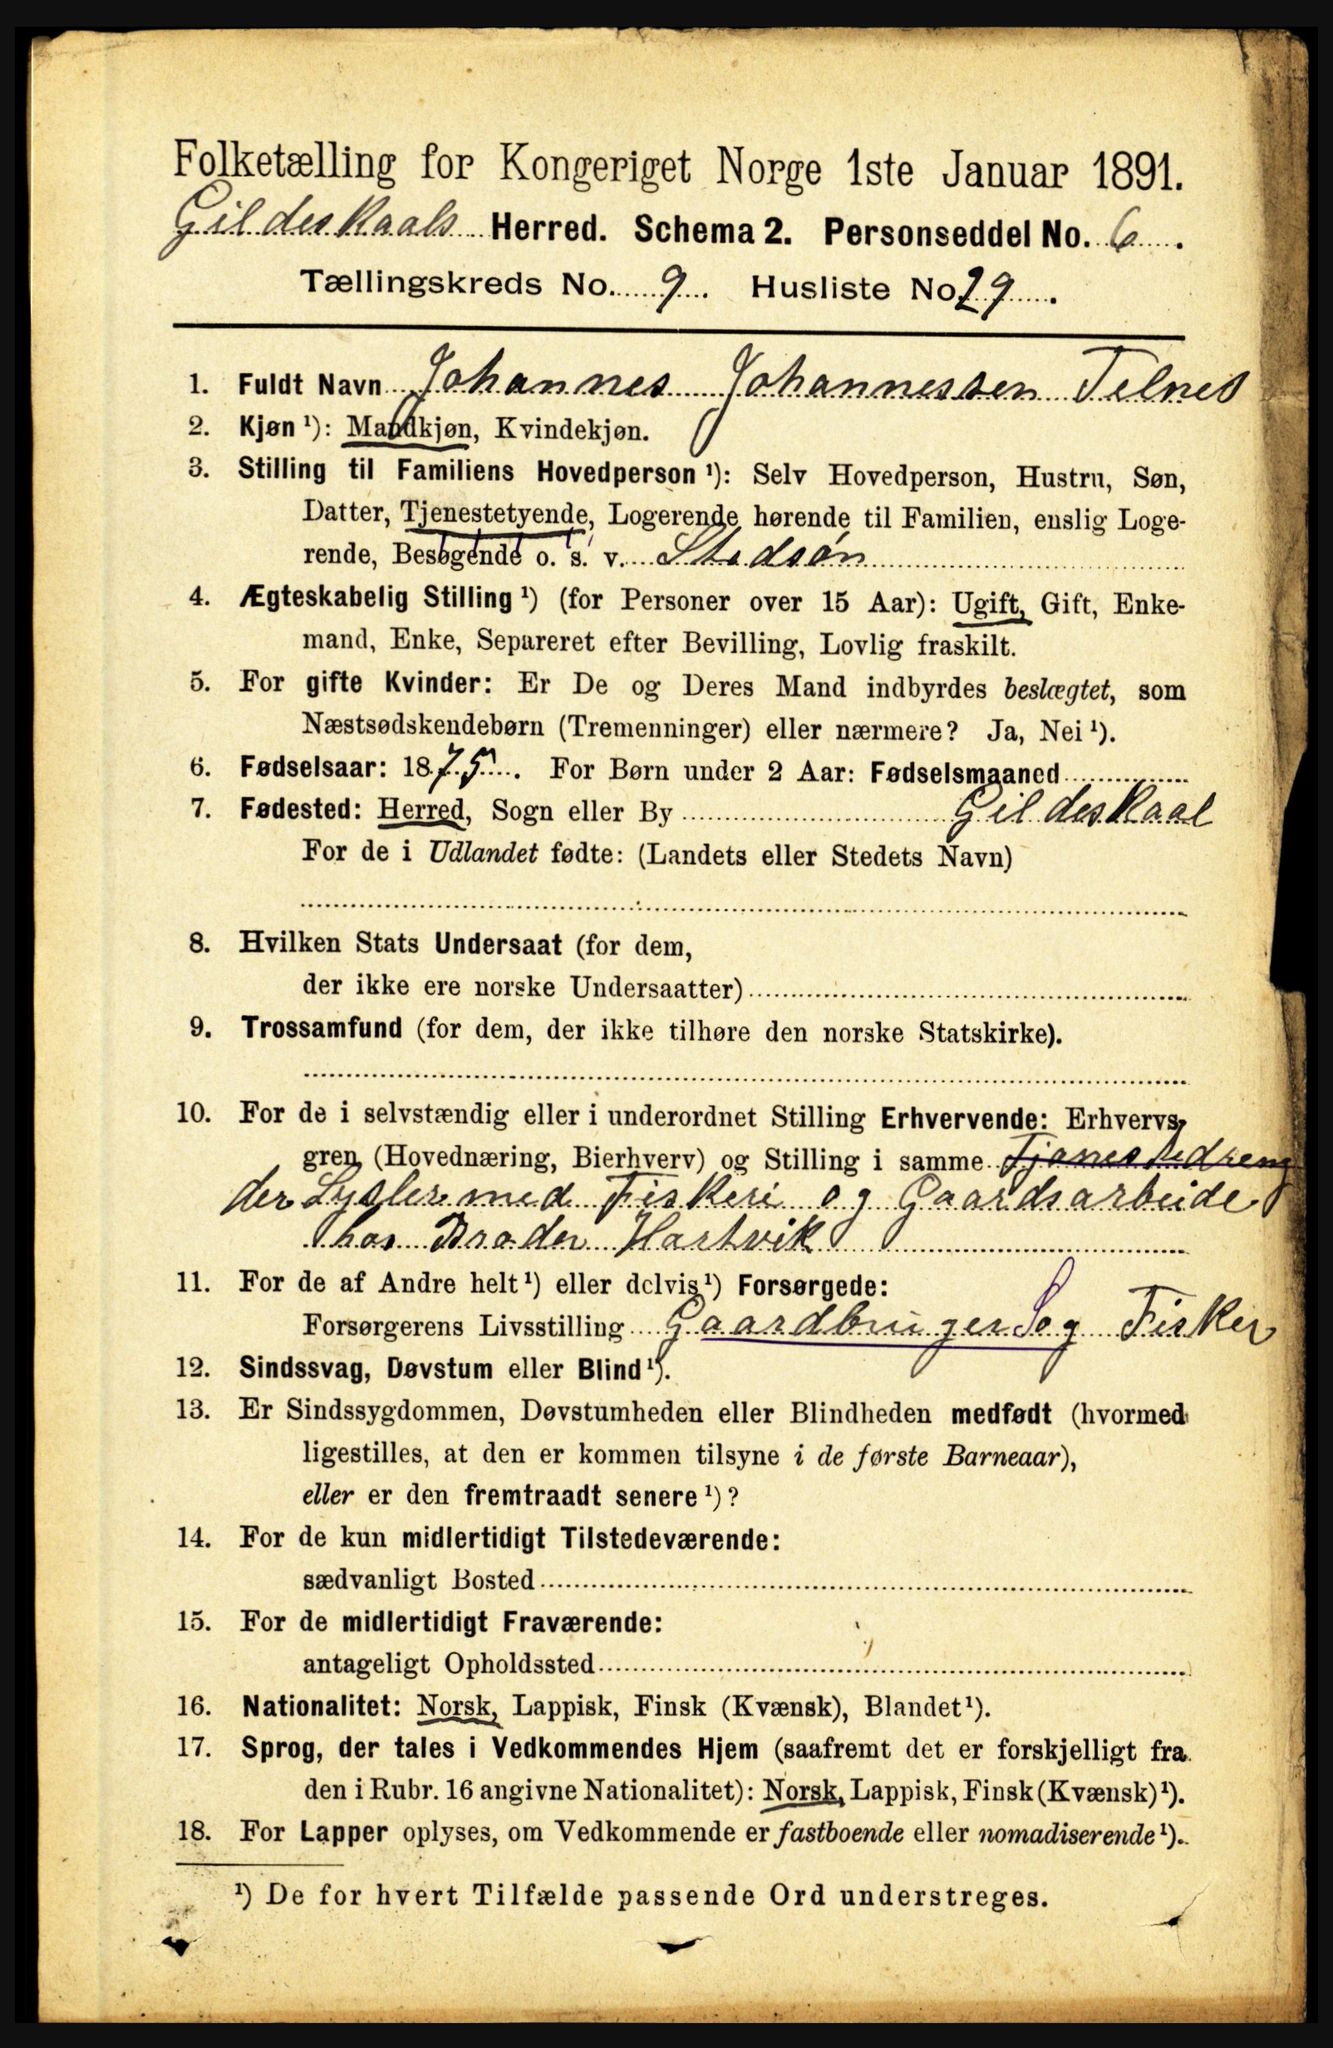 Folketælling for Kongeriget Norge 1ste Januar 1891.
Gildeskaals Herred. Schema 2. Personseddel No. 6.
Tællingskreds No. 9. Husliste No. 29.
1. Fuldt Navn Johannes Johannessen Telnes
2. Kjøn ¹): Mandkjøn, Kvindekjøn.
3. Stilling til Familiens Hovedperson ¹): Selv Hovedperson, Hustru, Søn,
Datter, Tjenestetyende, Logerende hørende til Familien, enslig Loge-
rende, Besøgende o. s. v. Stedsøn
4. Ægteskabelig Stilling ¹) (for Personer over 15 Aar): Ugift, Gift, Enke-
mand, Enke, Separeret efter Bevilling, Lovlig fraskilt.
5. For gifte Kvinder: Er De og Deres Mand indbyrdes beslægtet, som
Næstsødskendebørn (Tremenninger) eller nærmere? Ja, Nei ¹).
6. Fødselsaar: 1875. For Børn under 2 Aar: Fødselsmaaned
7. Fødested: Herred, Sogn eller By Gildeskaal
For de i Udlandet fødte: (Landets eller Stedets Navn)
8. Hvilken Stats Undersaat (for dem,
der ikke ere norske Undersaatter)
9. Trossamfund (for dem, der ikke tilhøre den norske Statskirke).
10. For de i selvstændig eller i underordnet Stilling Erhvervende: Erhvervs-
gren (Hovednæring, Bierhverv) og Stilling i samme Tjenestedreng
der Sysler med Fiskeri og Gaardsarbeide
hos Broder Hartvik
11. For de af Andre helt ¹) eller delvis ¹) Forsørgede:
Forsørgerens Livsstilling Gaardbruger S og Fisker
12. Sindssvag, Døvstum eller Blind ¹).
13. Er Sindssygdommen, Døvstumheden eller Blindheden medfødt (hvormed
ligestilles, at den er kommen tilsyne i de første Barneaar),
eller er den fremtraadt senere ¹)?
14. For de kun midlertidigt Tilstedeværende:
sædvanligt Bosted
15. For de midlertidigt Fraværende:
antageligt Opholdssted
16. Nationalitet: Norsk, Lappisk, Finsk (Kvænsk), Blandet ¹).
17. Sprog, der tales i Vedkommendes Hjem (saafremt det er forskjelligt fra
den i Rubr. 16 angivne Nationalitet): Norsk, Lappisk, Finsk (Kvænsk) ¹).
18. For Lapper oplyses, om Vedkommende er fastboende eller nomadiserende ¹).
¹) De for hvert Tilfælde passende Ord understreges.